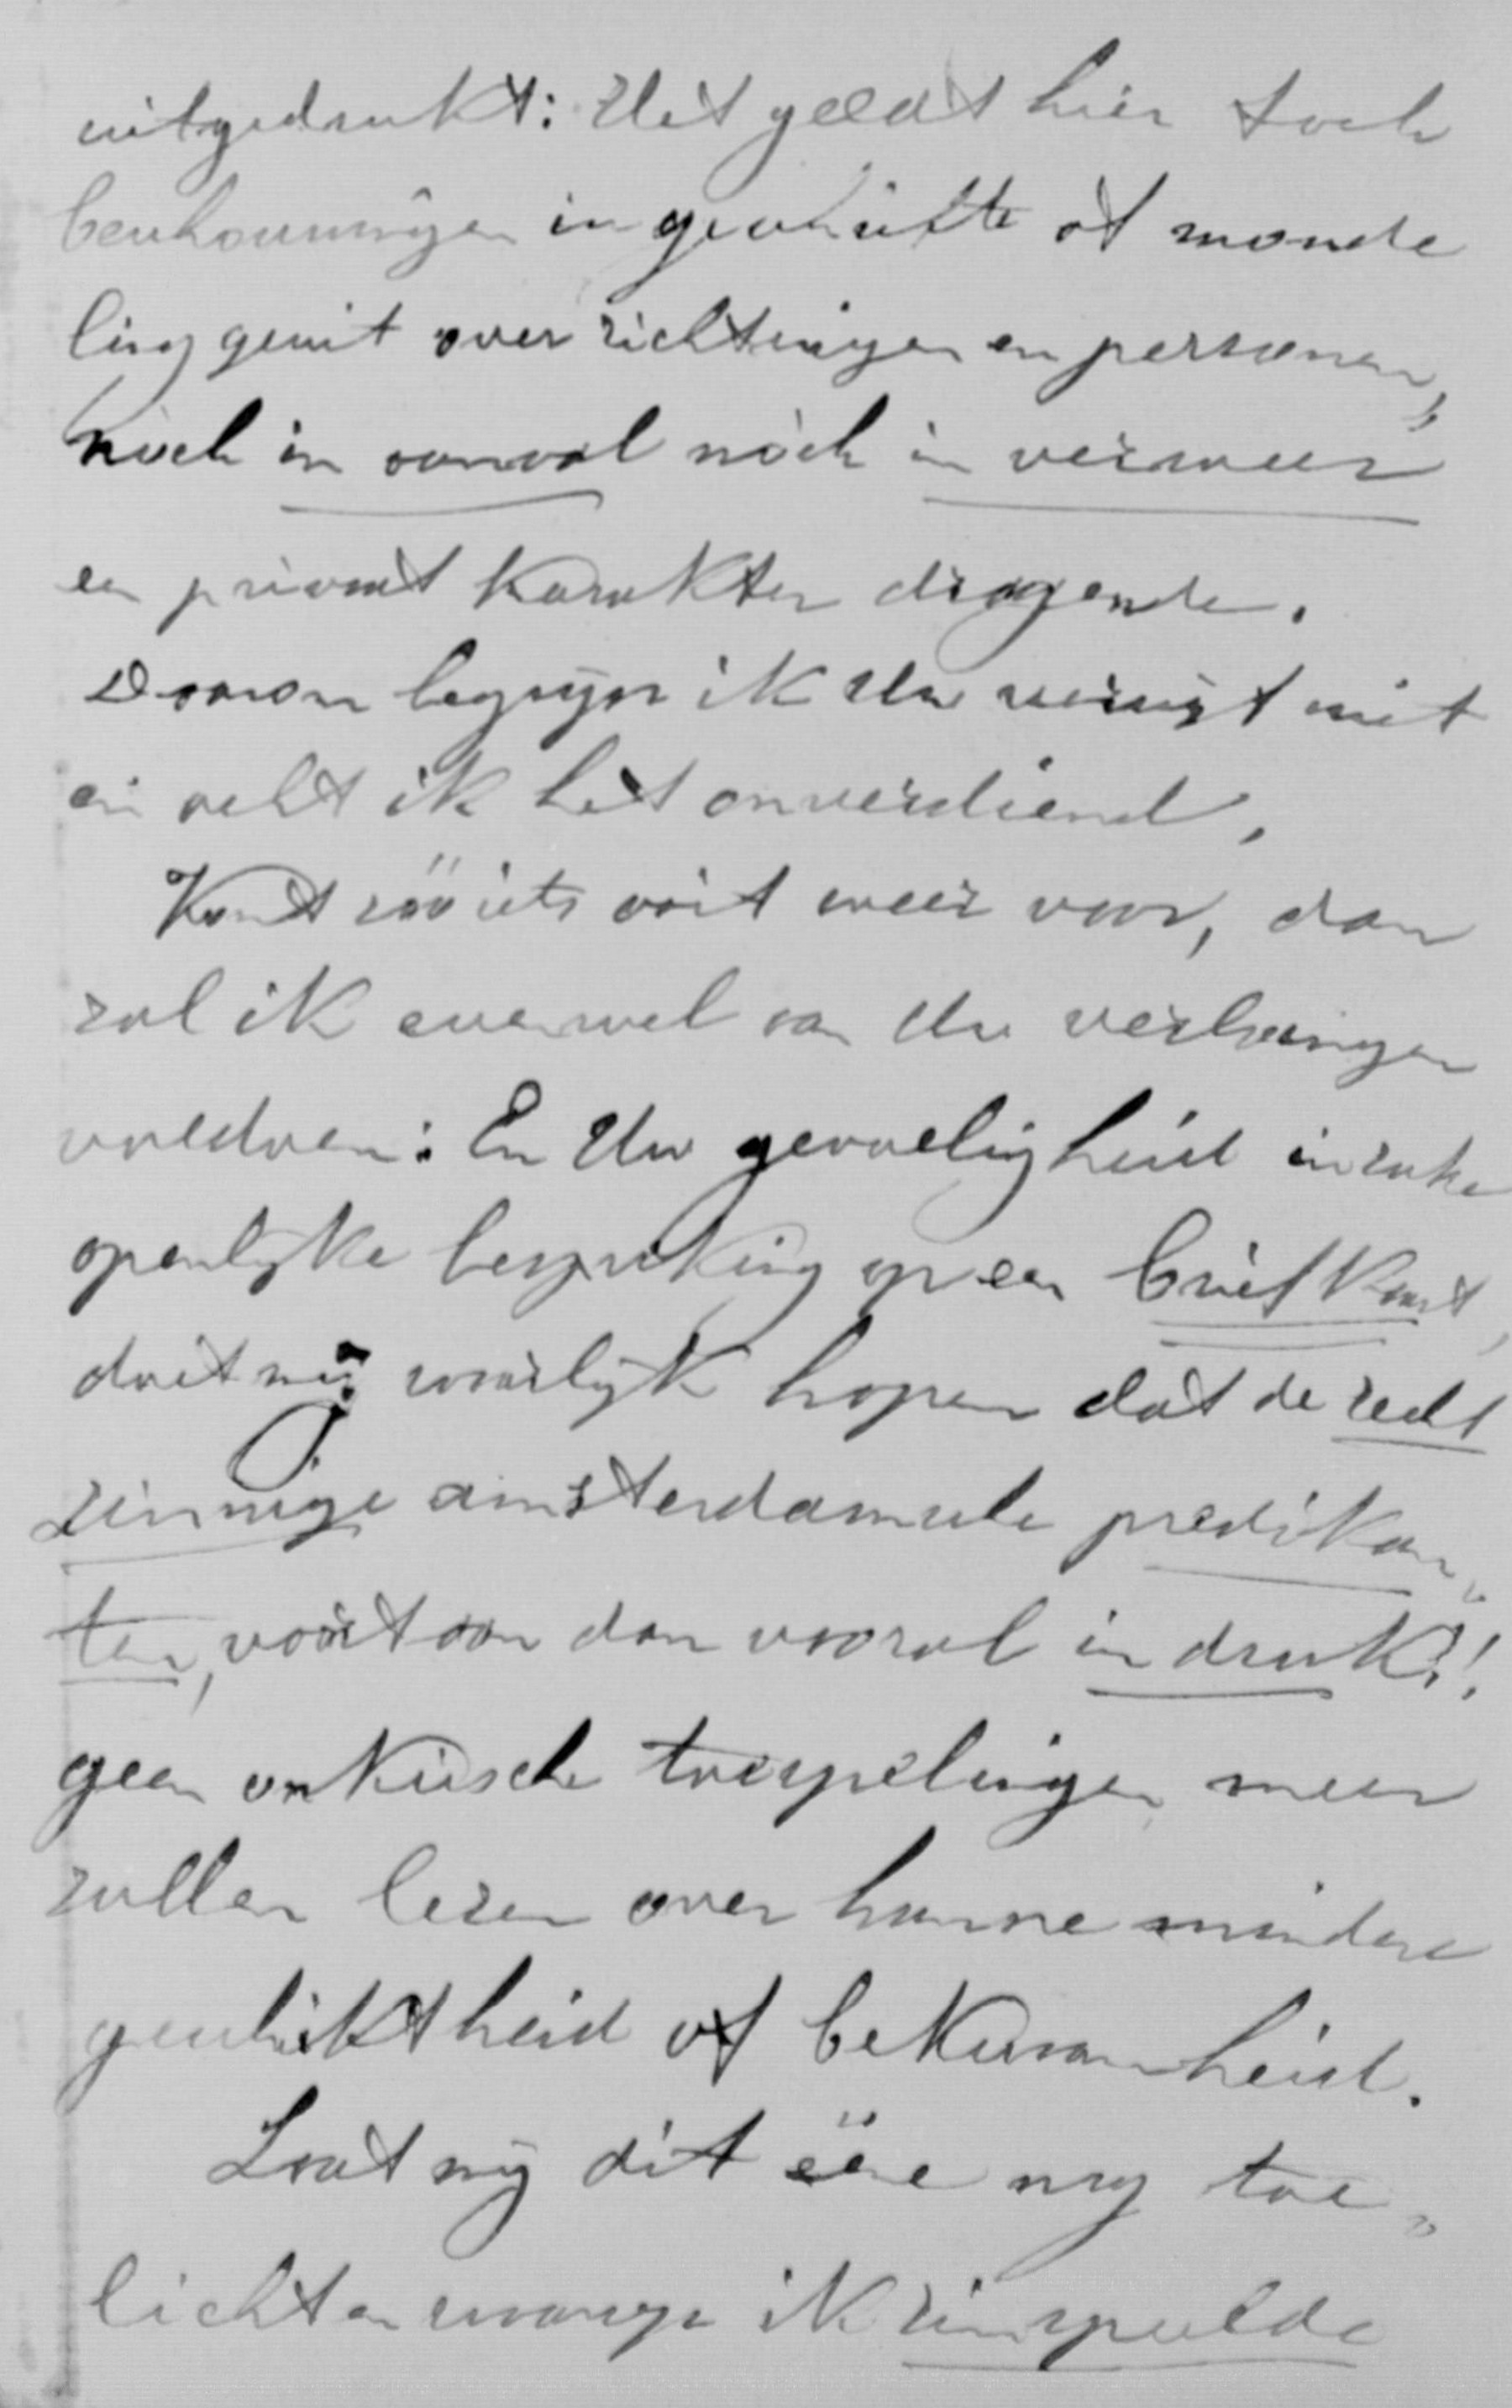 uitgedrukt: Het geldt hier toch
beschouwingen in geschrifte of monde
ling geuit over richtingen en personen,
nòch in aanval nòch in verweer
een privaat karakter dragende.
Daarom begrijp ik Uw verwijt niet
en acht ik het onverdiend.
Komt zóó iets ooit weer voor, dan
zal ik evenwel aan Uw verlangen
voldoen: En Uw gevoeligheid inzake
openlijke bespreking op een briefkaart,
doet mij waarlijk hopen dat de recht
zinnige amsterdamsche predikan„
ten, voortaan dan vooral in druk?!
geen onkiesche toespelingen meer
zullen lezen over hunne mindere
geschiktheid of bekwaamheid.
Laat mij dit ééne nog toe„
lichten waarop ik zinspeelde